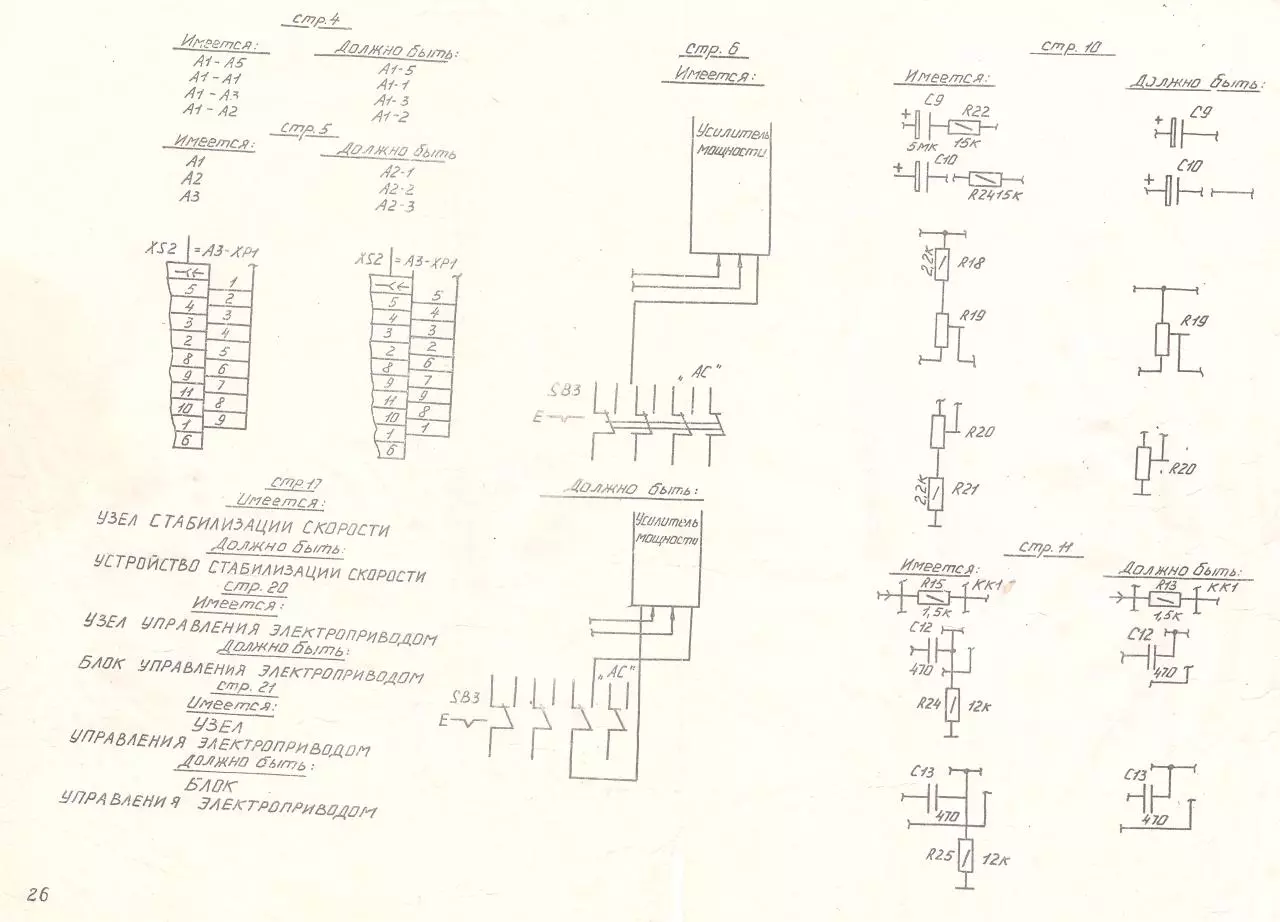 стр. 4
Имеется: Должно быть:
А1 - А5 А1-5
А1 - А1 А1-1
А1 - А3 А1-3
А1 - А2 А1-2
стр. 5
Имеется: Должно быть
А1 А2-1
А2 А2-2
А3 А2-3
XS2 =А3-ХР1
5 1
4 2
3 3
2 4
8 5
9 6
11 7
10 8
1 9
6
XS2 =А3-ХР1
5 5
4 4
3 3
2 2
8 6
9 7
11 9
10 8
1 1
6
стр. 17
Имеется:
УЗЕЛ СТАБИЛИЗАЦИИ СКОРОСТИ
Должно быть:
УСТРОЙСТВО СТАБИЛИЗАЦИИ СКОРОСТИ
стр. 20
Имеется:
УЗЕЛ УПРАВЛЕНИЯ ЭЛЕКТРОПРИВОДОМ
Должно быть:
БЛОК УПРАВЛЕНИЯ ЭЛЕКТРОПРИВОДОМ
стр. 21
Имеется:
УЗЕЛ
УПРАВЛЕНИЯ ЭЛЕКТРОПРИВОДОМ
Должно быть:
БЛОК
УПРАВЛЕНИЯ ЭЛЕКТРОПРИВОДОМ
26
стр. 6
Имеется:
Усилитель
мощности
„АС"
SB3
E
Должно быть:
Усилитель
мощности
„АС"
SB3
E
стр. 10
Имеется: Должно быть:
C9 R22
5МК 15К
C10
R24 15К
C9
C10
2,2К R18
R19
R19
R20
2,2К R21
R20
стр. 11
Имеется: Должно быть:
R15 КК1
1,5К
R13 КК1
1,5К
C12
470
R24 12К
C12
470
C13
470
R25 12К
C13
470